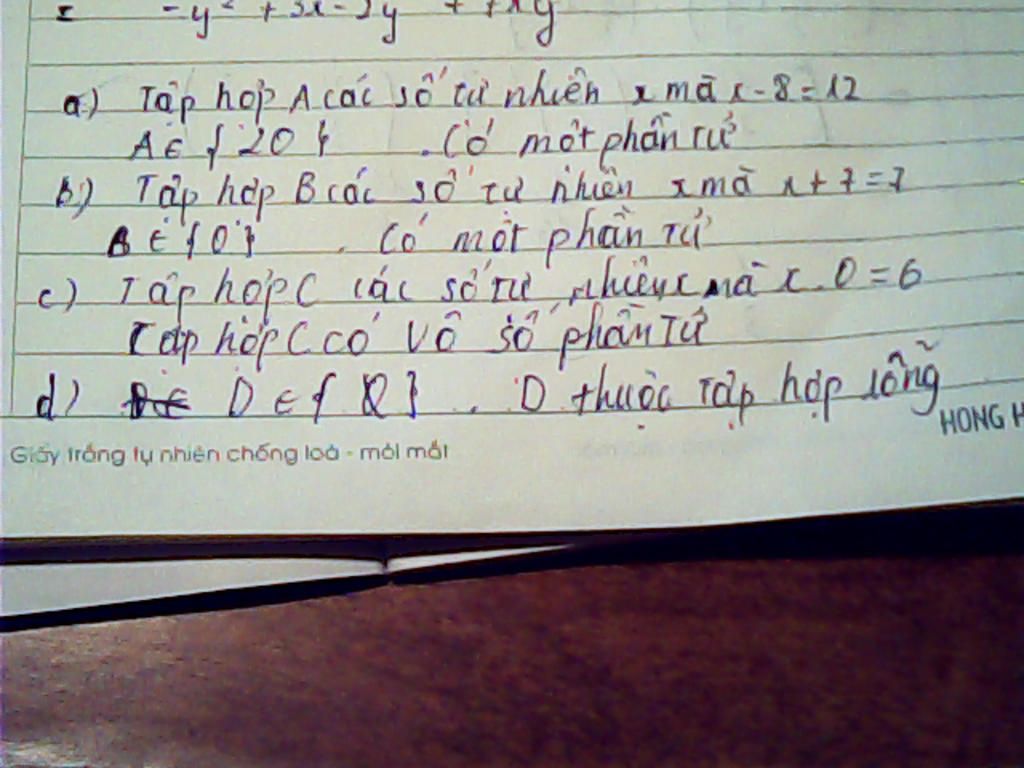 = -y² + 3x - 3y + 7xy
a) Tập hợp A các số tự nhiên x mà x - 8 = 12
A ∈ { 20 } . Có một phần tử
b) Tập hợp B các số tự nhiên x mà x + 7 = 7
B ∈ { 0 } . Có một phần tử
c) Tập hợp C các số tự nhiên x mà x . 0 = 6
Tập hợp C có vô số phần tử
d) D ∈ { Q } . D thuộc tập hợp rỗng
HONG H
Giấy trắng tự nhiên chống loá - mỏi mắt